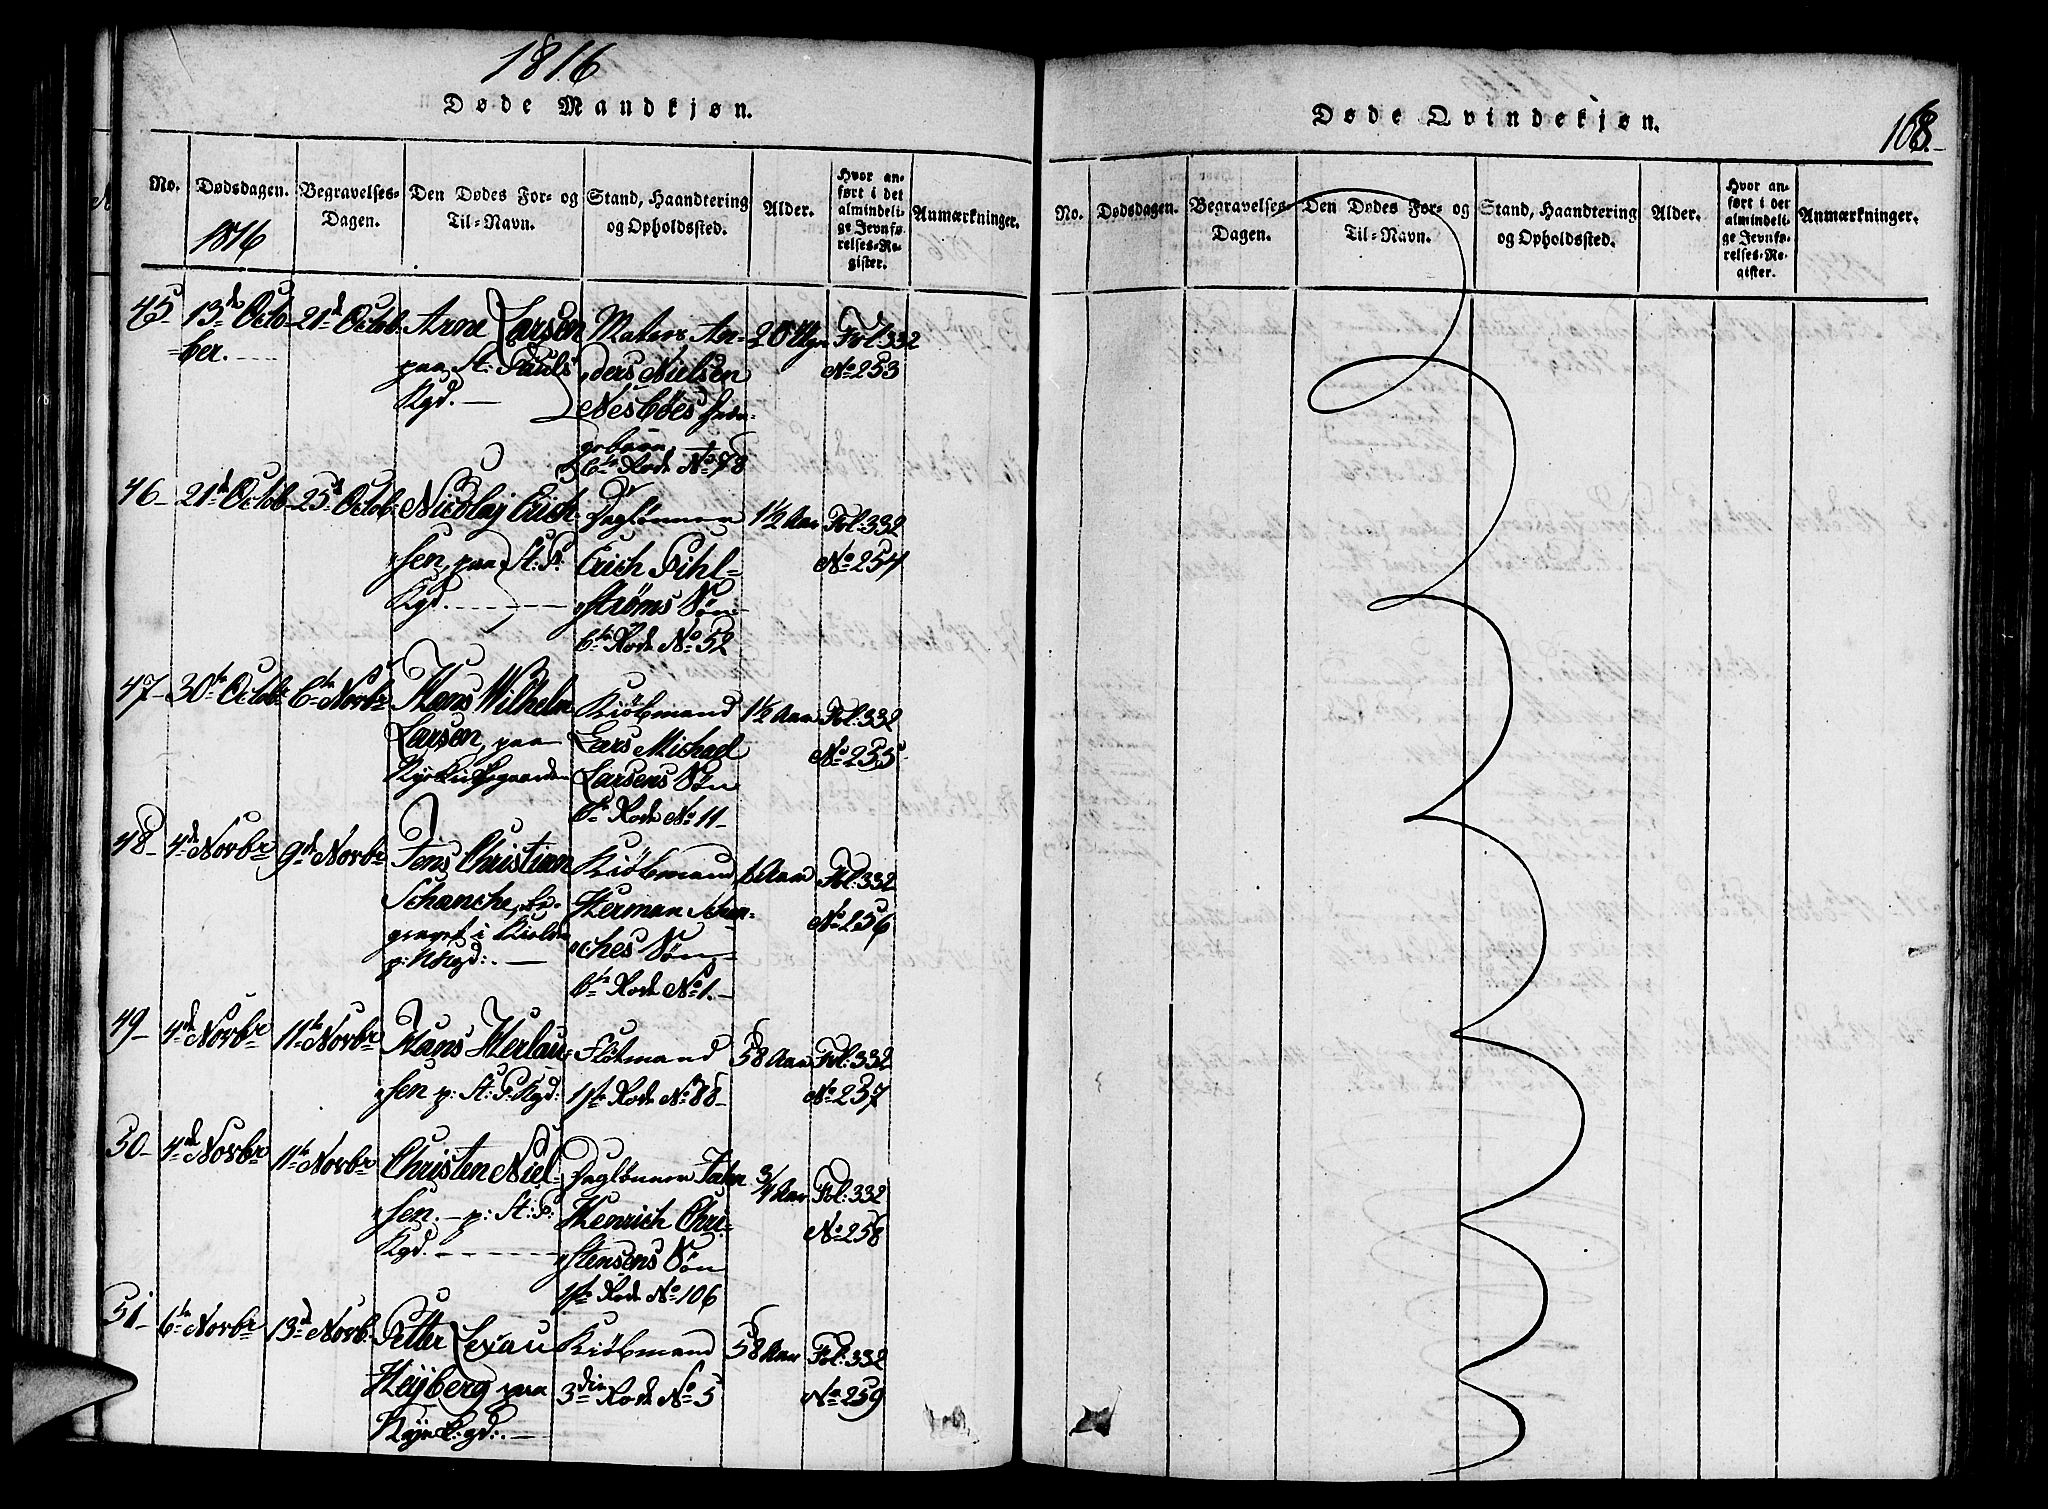 1816
Døde Mandkjøn.
No.
Dødsdagen.
1816
Begravelses-
Dagen.
Den Dødes For- og
Til-Navn.
Stand, Haandtering
og Opholdssted.
Alder.
Hvor an-
ført i det
almindeli-
ge Jevnfø-
relses-Re-
gister.
Anmærkninger.
45-
13de Octo-
ber.
21d Octob.
Arne Larsen
paa St. Pauls
Kgd.
Matros An-
ders Nielsen
Nesbøes
6te Rode No 78
20 Uger
Fol: 332
No 253
46-
21d Octob-
25d Octob.
Nicolaj Erich-
sen, paa St: P:
Kgd.
Daglønner
Erich Pihl-
strøms Søn
6te Rode No 52
1½ Aar
Fol: 332
No 254
47-
30te Octobr
6te Novbr
Hans Wilhelm
Larsen, paa
Kiøbmand
Lars Michael
Larsens Søn
6te Rode No 11-
1½ Aar
Fol: 332
No 255
48-
4de Novbr
9de Novbr
Jens Christian
Schanche, be-
gravet i
Kiøbmand
Herman Schan-
ches Søn
6te Rode No 1.-
Aar
Fol: 332
No 256
49-
4de Novbr
11te Novbr
Hans Herlau-
sen p: St: P: Kgd:
Fløtmand
1ste Rode No 88-
58 Aar
Fol: 332
No 257
50-
4de Novbr
11te Novbr
Christen Niel-
sen.- p: St: P:
Kgd.
Daglønner
Henrich Chri-
stensens Søn
1ste Rode No 106
3/4 Aar
Fol: 332
No 258
51-
6te Novbr
13d Novb.
Petter Lexau
Heyberg paa
Kgd:
Kiøbmand
3die Rode No 5
58 Aar
Fol: 332
No 259
Døde Qvindekjøn.
168.
No.
Dødsdagen.
Begravelses-
Dagen.
Den Dødes For- og
Til-Navn.
Stand, Haandtering
og Opholdssted.
Alder.
Hvor an-
ført i det
almindeli-
ge Jevnfø-
relses-Re-
gister.
Anmærkninger.